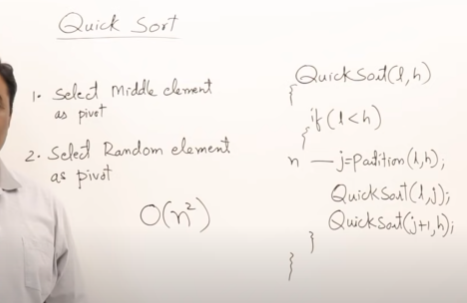 Quick Sort
1. Select Middle element
as pivot
2. Select Random element
as pivot
O(n²)
QuickSort(l,h)
{
if(l<h)
{
n — j=Partition(l,h);
QuickSort(l,j);
QuickSort(j+1,h);
}
}